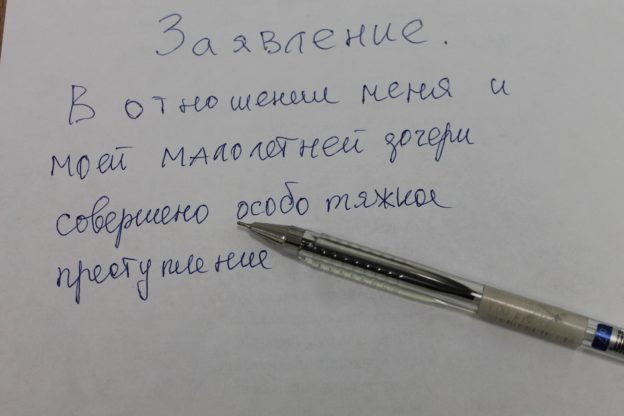 Заявление.
В отношении меня и
моей малолетней дочери
совершено особо тяжкое
преступление